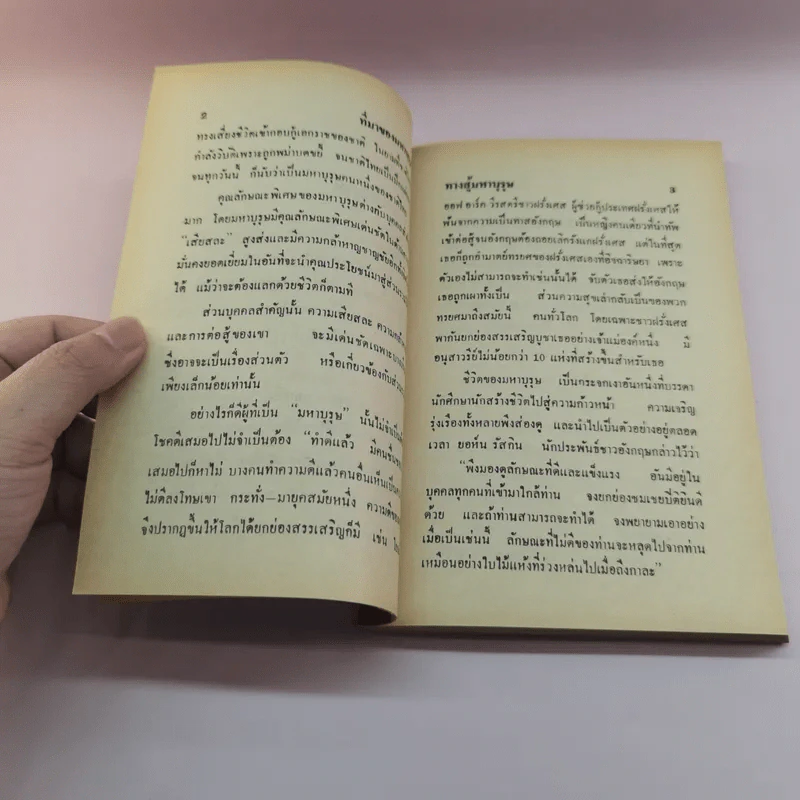 ๒
ที่มาของมหา
ทรงเสี่ยงชีวิตเข้ากอบกู้เอกราชของชาติ ในยามที่
กำลังวิบัติเพราะถูกพม่าบดขยี้ จนชาติไทยเป็นเป็น
จนทุกวันนี้ ก็นับว่าเป็นมหาบุรุษคนหนึ่งของชาติไทย
คุณลักษณะพิเศษของมหาบุรุษต่างกับบุคคล
มาก โดยมหาบุรุษมีคุณลักษณะพิเศษเด่นชัดในด้าน
"เสียสละ" สูงส่งและมีความกล้าหาญชาญชัย
มั่นคงยอดเยี่ยมในอันที่จะนำคุณประโยชน์มาสู่ส่วน
ได้ แม้ว่าจะต้องแลกด้วยชีวิตก็ตามที
ส่วนบุคคลสำคัญนั้น ความเสียสละ ความกล้า
และการต่อสู้ของเขา จะมีเด่นชัดเฉพาะ
ซึ่งอาจจะเป็นเรื่องส่วนตัว หรือเกี่ยวข้องกับส่วน
เพียงเล็กน้อยเท่านั้น
อย่างไรก็ดีผู้ที่เป็น "มหาบุรุษ" นั้นไม่จำเป็น
โชคดีเสมอไปไม่จำเป็นต้อง "ทำดีแล้ว มีคนชื่นชม
เสมอไปก็หาไม่ บางคนทำความดีแล้วคนอื่นเห็นเป็น
ไม่ดีลงโทษเขา กระทั่ง–มายุคสมัยหนึ่ง ความดีของ
จึงปรากฏขึ้นให้โลกได้ยกย่องสรรเสริญก็มี เช่น โจน
ทางสู้มหาบุรุษ
๓
ออฟ อาร์ค วีรสตรีชาวฝรั่งเศส ผู้ช่วยกู้ประเทศฝรั่งเศสให้
พ้นจากความเป็นทาสอังกฤษ เป็นหญิงคนเดียวที่นำทัพ
เข้าต่อสู้จนอังกฤษต้องถอยเลิกรังแกฝรั่งเศส แต่ในที่สุด
เธอก็ถูกอำมาตย์ทรยศของฝรั่งเศสเองที่อิจฉาริษยา เพราะ
ตัวเองไม่สามารถจะทำเช่นนั้นได้ จับตัวเธอส่งให้อังกฤษ
เธอถูกเผาทั้งเป็น ส่วนความสุขเล่ากลับเป็นของพวก
ทรยศมาถึงสมัยนี้ คนทั่วโลก โดยเฉพาะชาวฝรั่งเศส
พากันยกย่องสรรเสริญบูชาเธออย่างเจ้าแม่องค์หนึ่ง มี
อนุสาวรีย์ไม่น้อยกว่า 10 แห่งที่สร้างขึ้นสำหรับเธอ
ชีวิตของมหาบุรุษ เป็นกระจกเงาอันหนึ่งที่บรรดา
นักศึกษานักสร้างชีวิตไปสู่ความก้าวหน้า ความเจริญ
รุ่งเรืองทั้งหลายพึงส่องดู และนำไปเป็นตัวอย่างอยู่ตลอด
เวลา ยอห์น รัสกิน นักประพันธ์ชาวอังกฤษกล่าวไว้ว่า
"พึงมองดูลักษณะที่ดีและแข็งแรง อันมีอยู่ใน
บุคคลทุกคนที่เข้ามาใกล้ท่าน จงยกย่องชมเชยปิติยินดี
ด้วย และถ้าท่านสามารถจะทำได้ จงพยายามเอาอย่าง
เมื่อเป็นเช่นนี้ ลักษณะที่ไม่ดีของท่านจะหลุดไปจากท่าน
เหมือนอย่างใบไม้แห้งที่ร่วงหล่นไปเมื่อถึงกาละ"